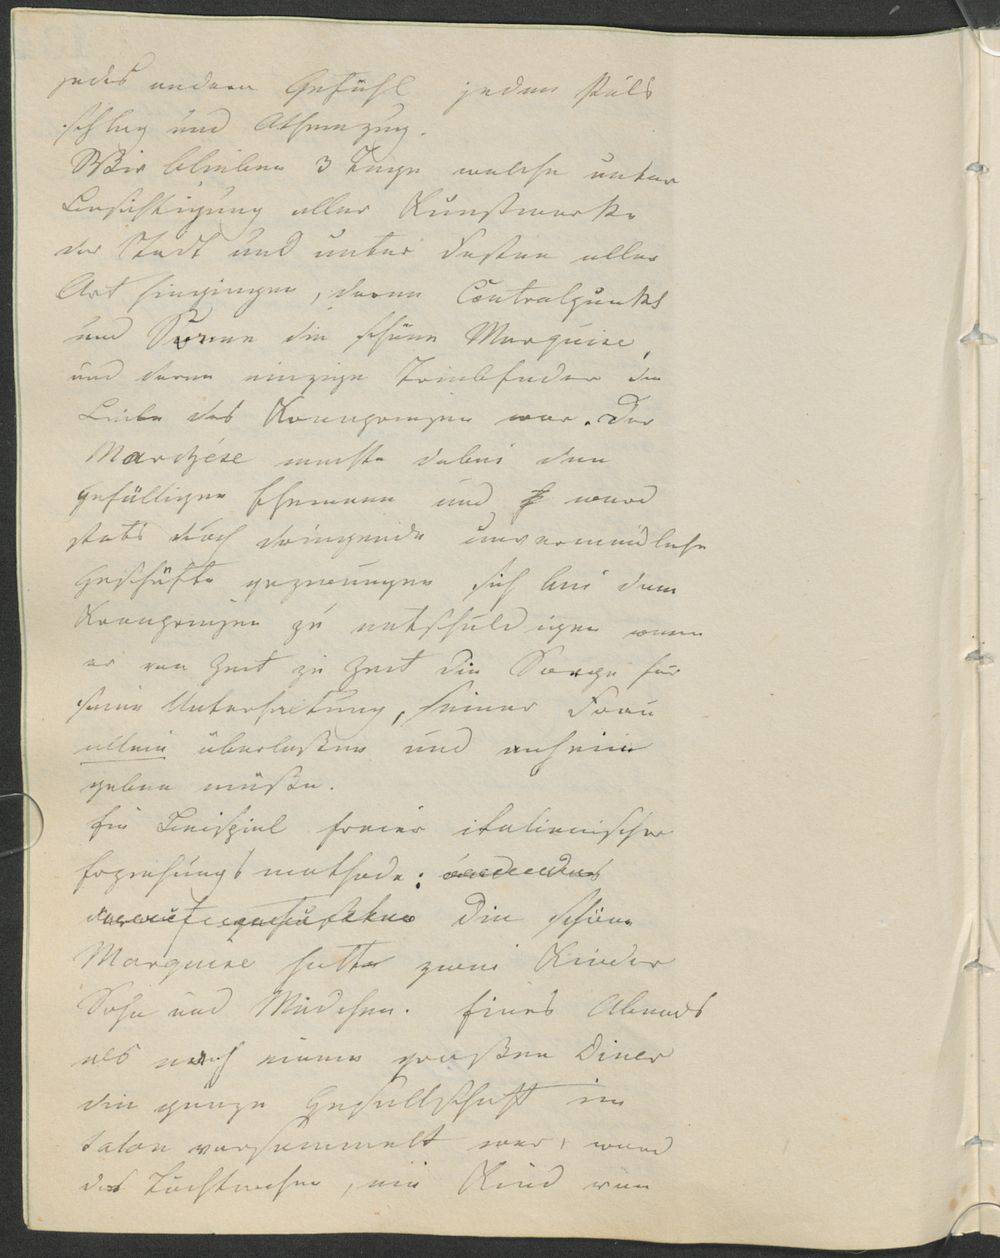 jedes andern Gefühl jeden Puls
schlag und Athemzug.
Wir blieben 3 Tage welche unter
Besichtigung aller Kunstwerke
der Stadt und unter Festen aller
Art hingingen, deren Centralpunkt
und Sonne die schöne Marquise,
und deren einzige Triebfeder die
Liebe des Kronprinzen war. Der
Marchése machte dabei den
gefälligen Ehemann und ward
stets durch dringende unvermeidliche
Geschäfte gezwungen sich bei dem
Kronprinzen zu entschuldigen wenn
er von Zeit zu Zeit die Sorge für
seine Unterhaltung, seiner Frau
allein überlaßen und anheim
geben müße.
Ein Beispiel freier italienischer
Erziehungsmethode:
Die schöne
Marquise hatte zwei Kinder
Sohn und Mädchen. Eines Abends
als nach einem großen Diner
die ganze Gesellschaft im
Salon versammelt war, ward
das Töchterchen, ein Kind von